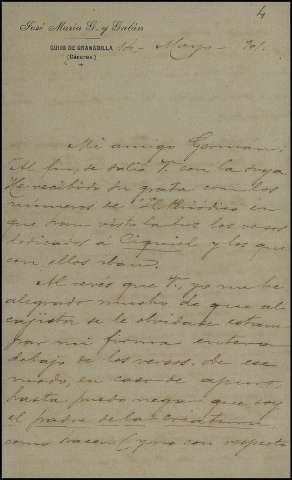 4
José María G. y Galán
GUIJO DE GRANADILLA
(CÁCERES)
14 - Mayo - 901.
Mi amigo Germán:
Al fin, se salió V. con la suya
He recibido su grata con los
números de "El
que han visto la luz los versos
dedicados á y los que
con ellos iban.
Al revés que V., yo me he
alegrado mucho de que al
cajista se le olvidase estam-
par mi firma entera
debajo de los versos. De ese
modo, en caso de apuro,
hasta puedo negar que soy
el padre de la criatura
como hacen y yo con respecto